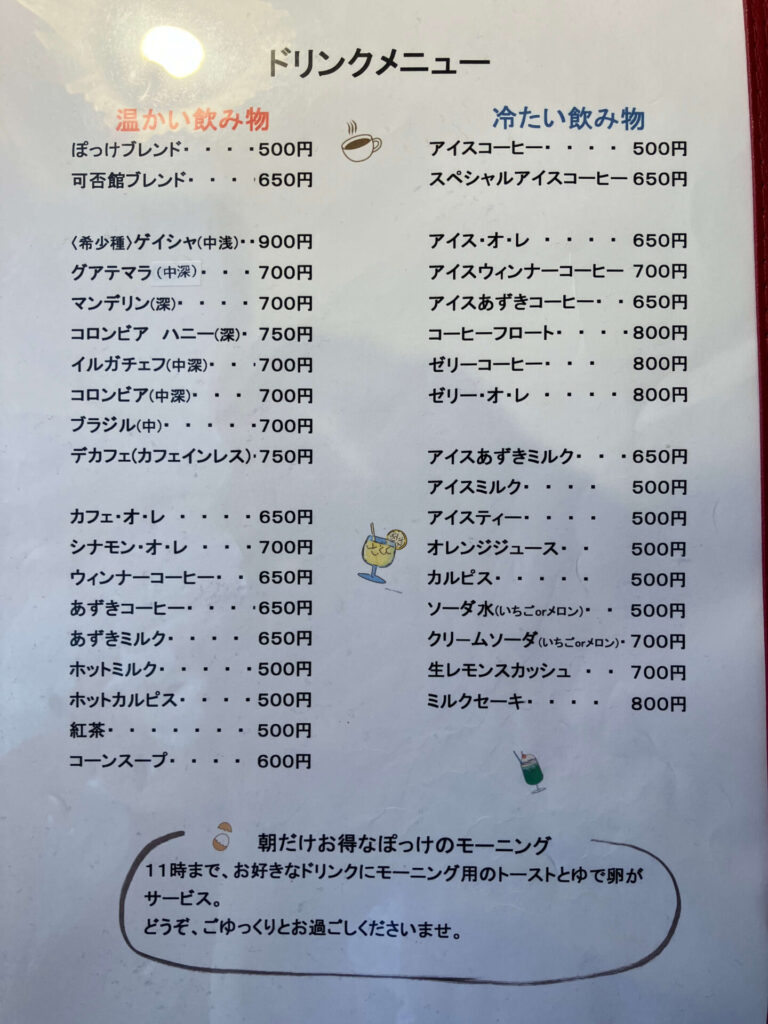 ドリンクメニュー
温かい飲み物
ぽっけブレンド・・・・500円
可否館ブレンド・・・・650円
〈希少種〉ゲイシャ(中浅)・・900円
グアテマラ(中深)・・・700円
マンデリン(深)・・・・700円
コロンビア　ハニー(深)・750円
イルガチェフ(中深)・・・700円
コロンビア(中深)・・・700円
ブラジル(中)・・・・・700円
デカフェ(カフェインレス)・750円
カフェ・オ・レ ・・・・650円
シナモン・オ・レ ・・・700円
ウィンナーコーヒー・・650円
あずきコーヒー・・・・650円
あずきミルク・・・・650円
ホットミルク・・・・・500円
ホットカルピス・・・・500円
紅茶・・・・・・・500円
コーンスープ・・・・600円
冷たい飲み物
アイスコーヒー・・・・500円
スペシャルアイスコーヒー650円
アイス・オ・レ ・・・・650円
アイスウィンナーコーヒー 700円
アイスあずきコーヒー・・650円
コーヒーフロート・・・・800円
ゼリーコーヒー・・・ 800円
ゼリー・オ・レ ・・・・800円
アイスあずきミルク・・・650円
アイスミルク・・・・ 500円
アイスティー・・・・ 500円
オレンジジュース・・ 500円
カルピス・・・・・ 500円
ソーダ水(いちごorメロン)・・500円
クリームソーダ(いちごorメロン)・700円
生レモンスカッシュ ・・700円
ミルクセーキ・・・・ 800円
朝だけお得なぽっけのモーニング
11時まで、お好きなドリンクにモーニング用のトーストとゆで卵が
サービス。
どうぞ、ごゆっくりとお過ごしくださいませ。